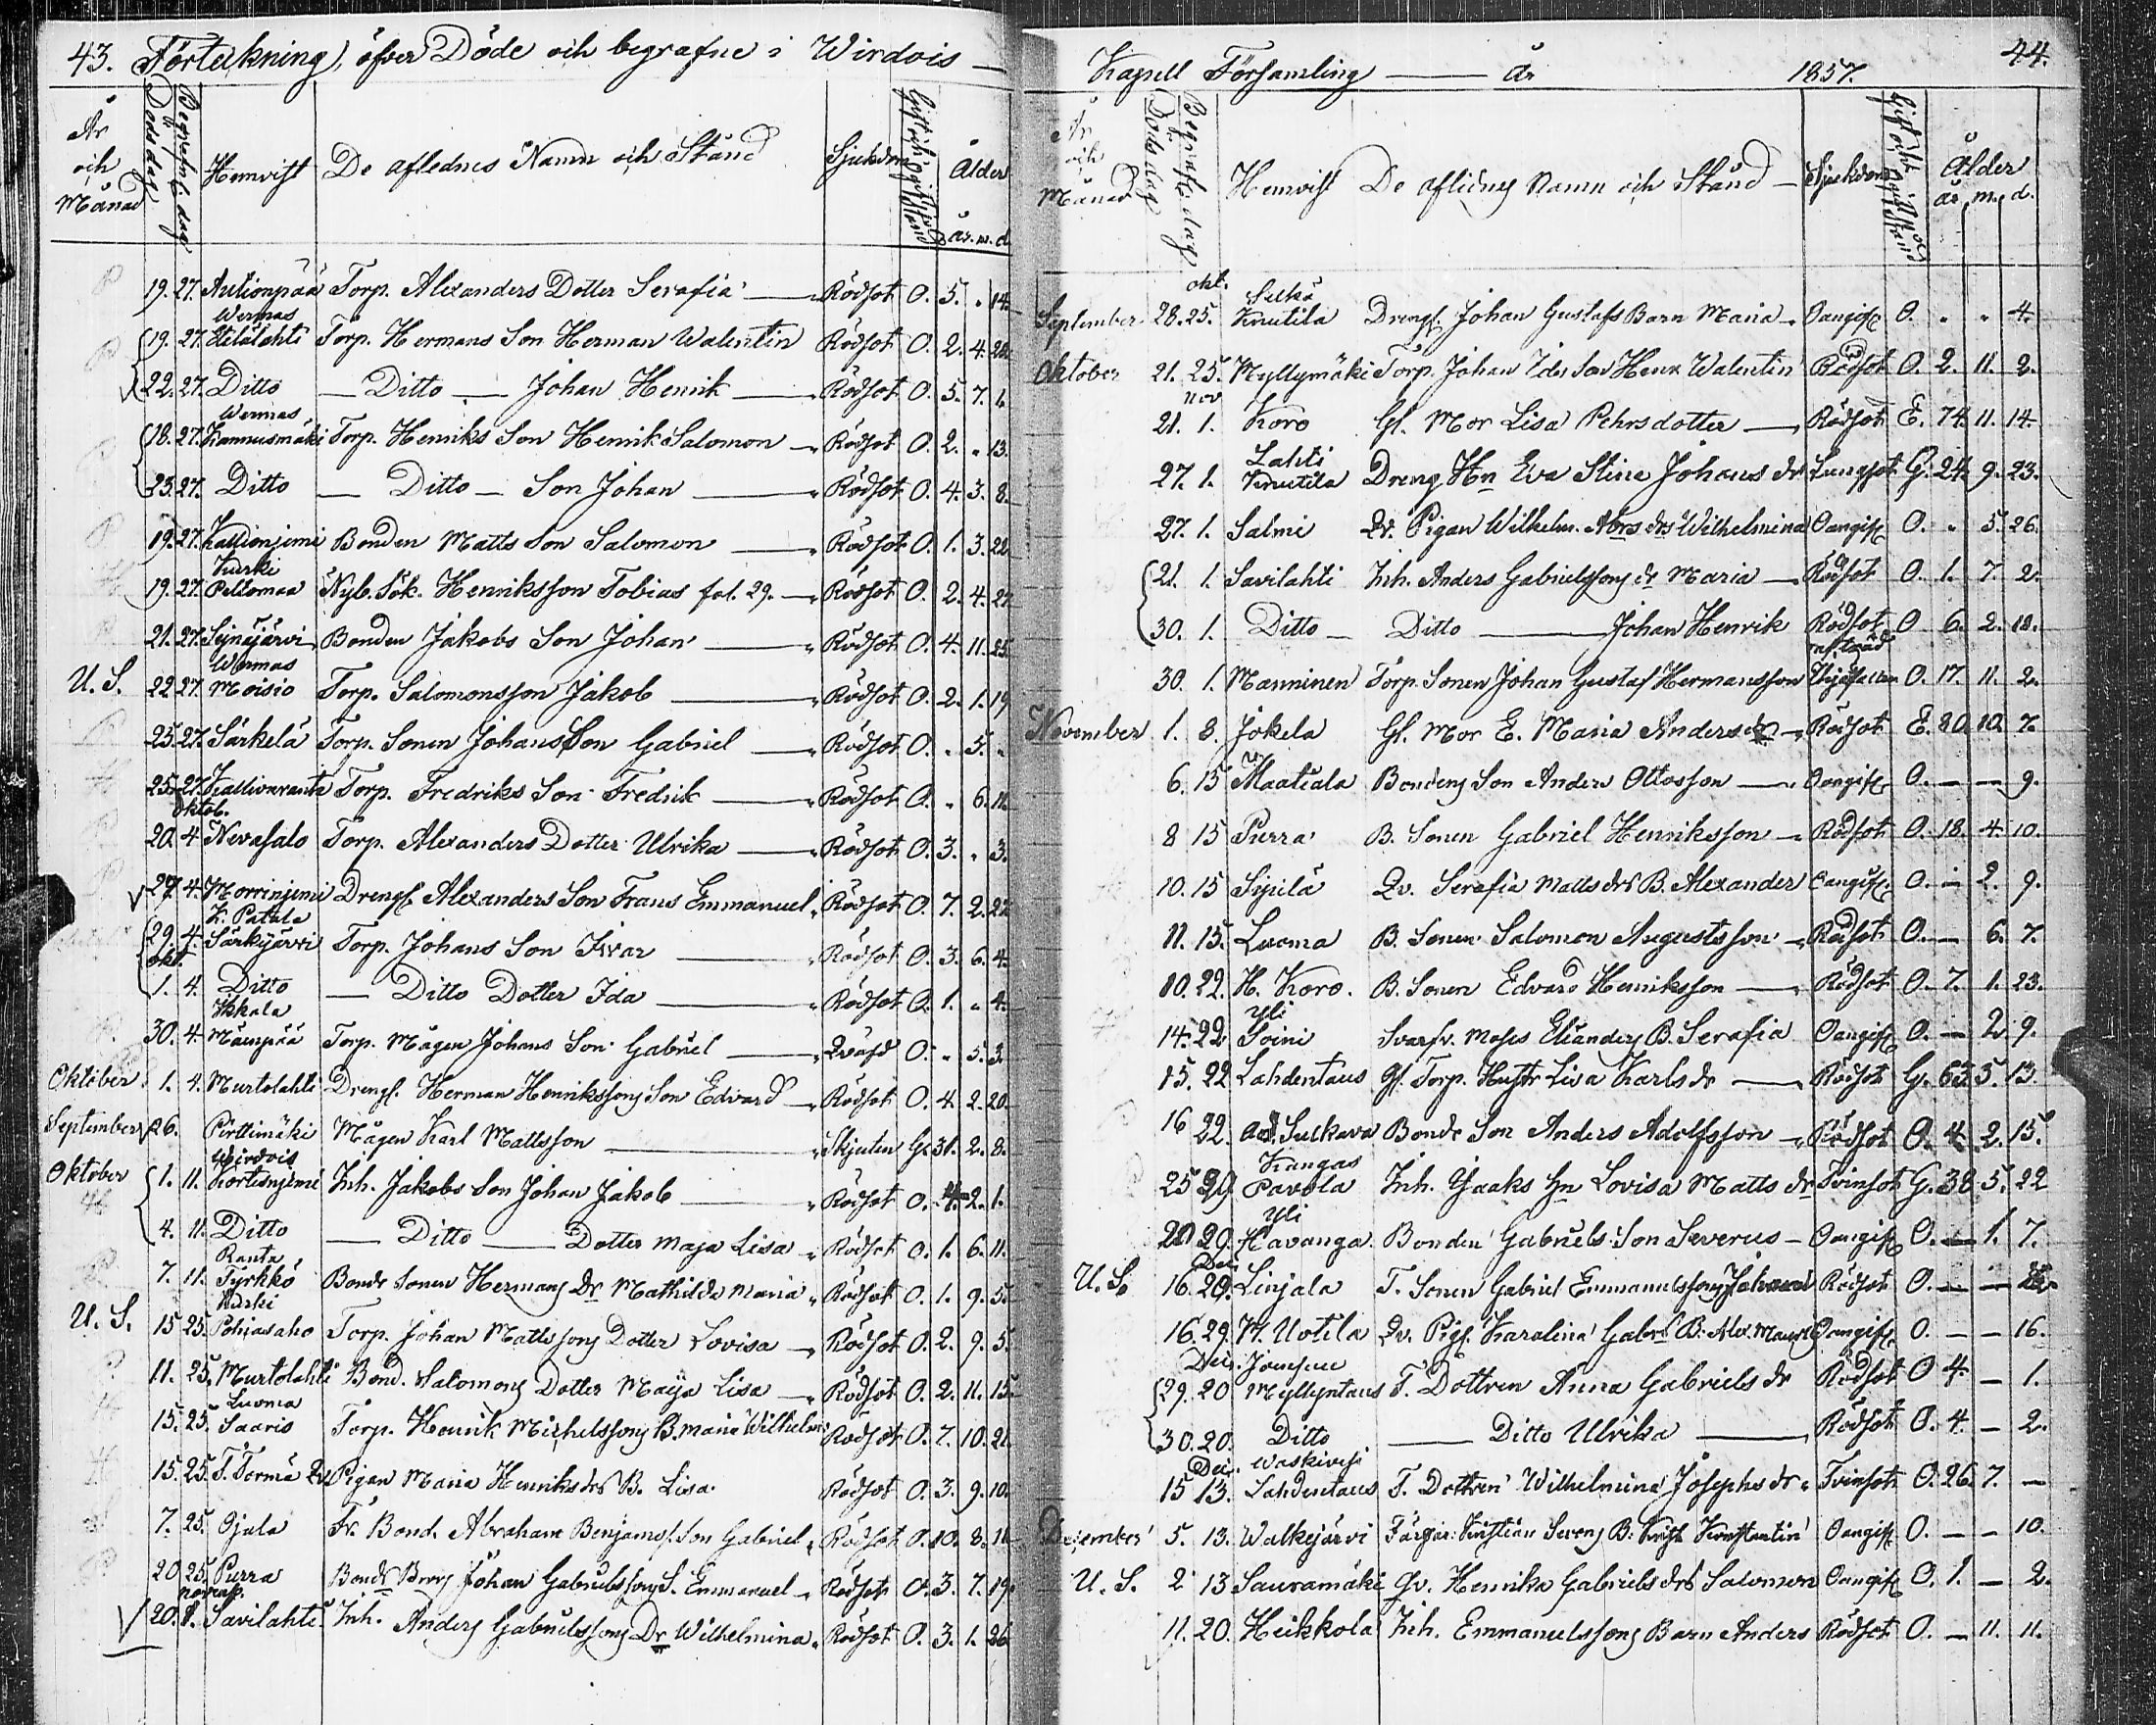 43. Förtekning, öfver Döde och begrafne i Wirdois
År och Månad Dödsdag Begrafn. dag Hemvist De aflednes Namn och Stånd Sjukdom Gift och ogift Stånd Ålder år. m. d.
19. 27. Autionpää Torp. Alexanders Dotter Serafia Rödsot O. 5. " 14.
Wermas
19. 27. Hetälahti Torp. Hermans Son Herman Walentin Rödsot O. 2. 4. 20.
22. 27. Ditto Ditto Johan Henrik Rödsot O. 5. 7.
Wermas
18. 27. Kannusmäki Torp. Henriks Son Henrik Salomon Rödsot O. 2. " 13.
23. 27. Ditto Ditto Son Johan Rödsot O. 4. 3. 8.
19. 27. Kallionjemi Bonden Matts Son Salomon Rödsot O. 1. 3. 22.
Kurki
19. 27. Peltomaa Nyb. Sök. Henriksson Tobias fol. 29. Rödsot O. 2. 4. 27.
21. 27. Sejnäjärvi Bonden Jakobs Son Johan Rödsot O. 4. 11. 25.
Wermas
U. S. 22. 27. Moisio Torp. Salomonsson Jakob Rödsot O. 2. 1. 19
25. 27. Särkelä Torp. Sonen Johans Son Gabriel Rödsot O. " 5. "
25. 27. Kallioranta Torp. Fredriks Son Fredrik Rödsot O. " 6. 12.
Oktob.
20. 4. Nevasalo Torp. Alexanders Dotter Ulrika Rödsot O. 3. " 3.
27. 4. Morrinjemi Drengs. Alexanders Son Frans Emmanuel Rödsot O. 7. 2. 27.
K. Patala
29. 4. Särkijärvi Torp. Johans Son Ivar Rödsot O. 3. 6. 4.
okt.
1. 4. Ditto Ditto Dotter Ida Rödsot O. 1. " 4.
Ikkala
30. 4. Mäenpää Torp. Mågen Johans Son Gabriel Qväfd O. " 5. 3.
Oktober 1. 4. Murtolahti Drengs. Herman Henrikssons Son Edvard Rödsot O. 4. 2. 20.
September 26. Pirttimäki Mågen Karl Mattsson Skjuten G. 31. 2. 8.
Wirdois
Oktober 1. 11. Kortesnjemi Inh. Jakobs Son Johan Jakob Rödsot O. 4. 2. 1.
4. 11. Ditto Ditto Dotter Maja Lisa Rödsot O. 1. 6. 11.
Ranta
7. 11. Tyrkkö Bonde Sonen Hermans Dr Mathilda Maria Rödsot O. 1. 9. 5.
Kurki
U. S. 15 25. Pohjasaho Torp. Johan Mattssons Dotter Lovisa Rödsot O. 2. 9. 5.
11. 25. Murtolahti Bond. Salomons Dotter Maija Lisa Rödsot O. 2. 11. 15.
Luoma
15. 25. Saaris Torp. Henrik Michelssons B. Maria Wilhelm. Rödsot O. 7. 10. 21.
15. 25. T. Törmä Qv. Pigan Maria Henriks drs B. Lisa Rödsot O. 3. 9. 10.
7. 25. Ojala Fr. Bond. Abraham Benjams. Son Gabriel Rödsot O. 10. 8. 16
20 25. Purra Bonde Brors Johan Gabrielssons S. Emmanuel Rödsot O. 3. 7. 19.
novemb.
20. 1. Savilahti Inh. Anders Gabrielssons Dr Wilhelmina Rödsot O. 3. 1. 26
Kapell Församling År 1857. 44.
År och Månad Döds dag Begrafn. dag Hemvist De aflidnes Namn och Stånd Sjukdom Gift och ogift Stånd Ålder år. m. d.
okt. Selkä
September 28. 25. Knutila Drengs. Johan Gustafs Barn Maria Oangif. O. " " 4.
Oktober 21. 25. Myllymäki Torp. Johan Son Henr. Walentin Rödsot O. 2. 11. 2.
nov
21. 1. Koro Gl. Mor Lisa Pehrsdotter Rödsot E. 74. 11. 14.
Lahti
27. 1. Knutila Dreng Hn Eva Stina Johans dr Lungsot G. 24. 9. 23.
27. 1. Salmi Qv. Pigan Wilhelm. Abrs drs Wilhelmina Oangif. O. " 5. 26.
21. 1. Savilahti Inh. Anders Gabrielssons dr Maria Rödsot O. 1. 7. 2.
30. 1. Ditto Ditto Johan Henrik Rödsot O 6. 2. 18.
30. 1. Manninen Torp. Sonen Johan Gustaf Hermansson Ihjelfallen O. 17. 11. 2.
November 1. 8. Jokela Gl. Mor E. Maria Anders dr Rödsot E. 80. 10. 7.
6. 15 Maatiala Bondens Son Anders Ottosson Oangif. O. — — 9.
8 15 Purra B. Sonen Gabriel Henriksson Rödsot O. 18. 4. 10.
10. 15 Sipilä Qv. Serafia Matts drs B. Alexander Oangif. O. — 2. 9.
11. 15. Luoma B. Sonen Salomon Augustsson Rödsot O. — 6. 7.
10. 22. H. Koro. B. Sonen Edvard Henriksson Rödsot O. 7. 1. 23.
Yli
14. 22 Soini Svarfv. Moses Elianders B. Serafia Oangif. O. — 2. 9.
15. 22. Lahdentaus Gl. Torp. Hustr Lisa Karls dr Rödsot G. 63. 5. 13.
16 22. Ad. Sulkava Bonde Son Anders Adolfsson Rödsot O. 4. 2. 15.
Kangas
25 29. Pavola Inh. Isaaks Hn Lovisa Matts dr Tvinsot G. 38. 5. 22
Yli
20 29. Havanga Bonden Gabriels Son Severus Oangif. O. — 1. 7.
Dec.
U. S. 16. 29. Linjala T. Sonen Gabriel Emmanuelssons Johannes Rödsot O. — —
16. 29. H. Uotila Qv. Pigs. Karolina Gabrs B. Alex. Maurits Oangif. O. — — 16.
Dec.
29. 20 Myllyntaus T. Dottren Anna Gabriels dr Rödsot O 4. — 1.
30. 20. Ditto Ditto Ulrika Rödsot O. 4. — 2.
Dec. Waskivesi
15 13. Lahdentaus T. Dottren Wilhelmina Josephs dr Tvinsot O. 26. 7. —
December 5. 13. Walkejärvi Färgar. Kristian Svens B. Konstantin Oangif. O. — — 10.
U. S. 2 13 Sauramäki Qv. Henrika Gabriels drs Salomon Oangif. O. 1. — 2.
11. 20. Heikkola Inh. Emmanuelssons Barn Anders Rödsot O. — 11. 11.